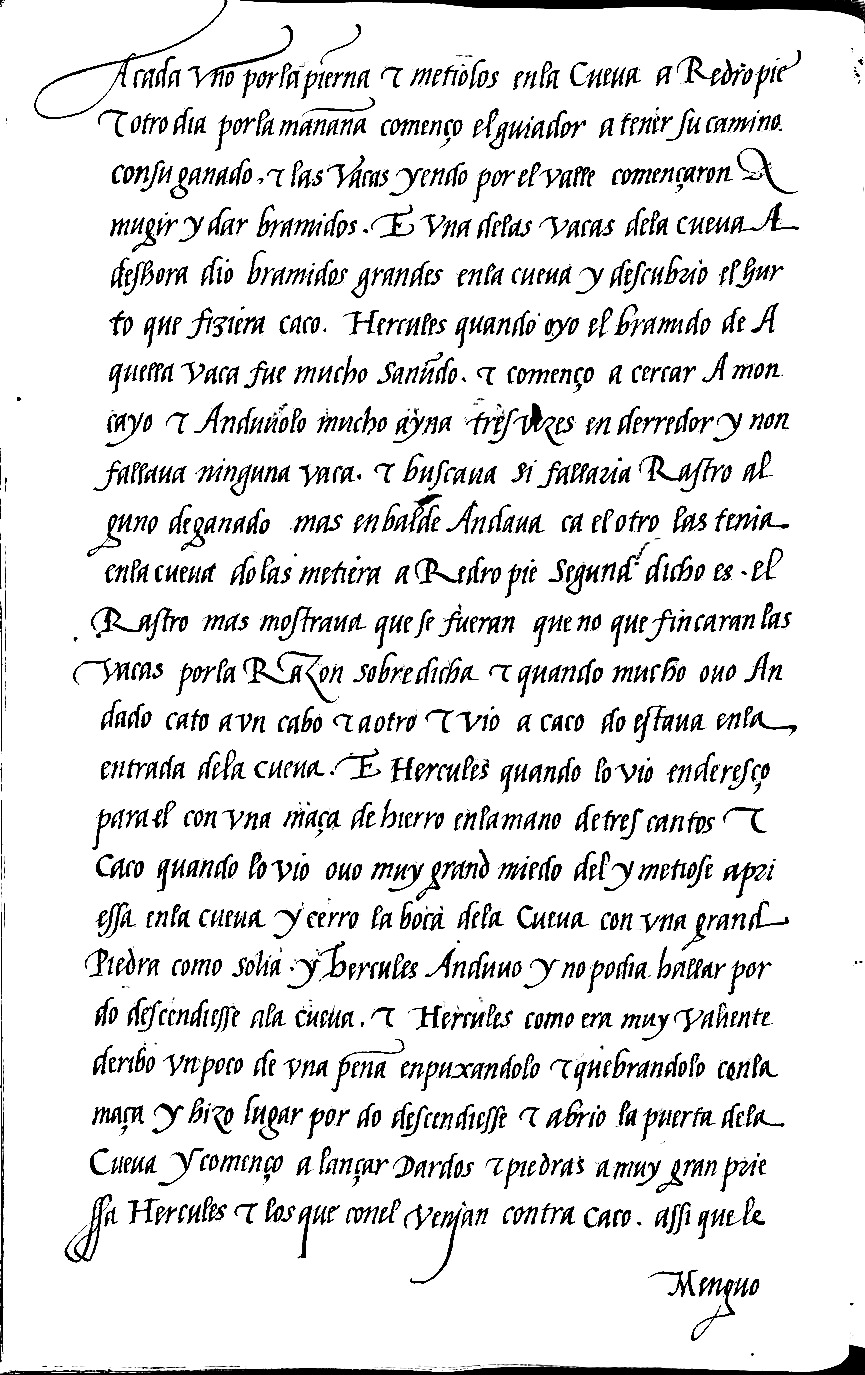 A cada vno por la pierna τ metiolos enla Cueua a Redro pie
τ otro dia por la mañana començo el guiador a tener su camino.
con su ganado, τ las Vacas yendo por el valle començaron A
mugir y dar bramidos. E Vna delas vacas dela cueua A
deshora dio bramidos grandes enla cueua y descubrio el hur
to que fiziera caco. Hercules quando oyo el bramido de A
quella vaca fue mucho sañudo. τ començo a cercar A mon
cayo τ Anduuolo mucho ayna tres vezes en derredor y non
fallaua ninguna vaca. τ buscaua si fallaria Rastro al
guno de ganado mas en balde Andaua ca el otro las tenia
enla cueua do las metiera a Redro pie Segund dicho es. el
Rastro mas mostraua que se fueran que no que fincaran las
vacas por la Razon sobre dicha τ quando mucho ouo An
dado cato a vn cabo τ a otro τ vio a caco do estaua enla
entrada dela cueua. E Hercules quando lo vio enderesço
para el con vna maça de hierro enla mano de tres cantos τ
Caco quando lo vio ouo muy grand miedo del y metiose apri
essa enla cueua y cerro la boca dela Cueua con vna grand
Piedra como solia. y hercules Anduuo y no podia hallar por
do descendiesse ala cueua. τ Hercules como era muy valiente
deribo vn poco de vna peña enpuxandolo τ quebrandolo conla
maça y hizo lugar por do descendiesse τ abrio la puerta dela
Cueua y començo a lançar Dardos τ piedras a muy gran prie
ssa Hercules τ los que conel venjan contra Caco. assi que le
Menguo